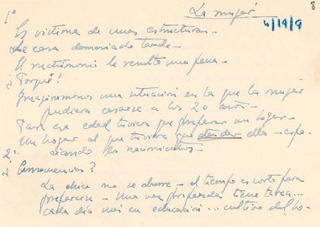 La mujer
4/19/9
8
1º
Es víctima de unas estructuras.
Se casa demasiado tarde.
El matrimonio le resulta una pena.
¿Porqué?
Imaginemonos una situación en la que la mujer
pudiera casarse a los 20 años.
Para esa edad tiene que preparar un hogar.
Un hogar al que tendrá que atender ella
los
2º
¿Consecuencias?
La chica no se aburre - el tiempo es corto para
prepararse - Una vez preparada tiene tarea...
cada día más en educación... cultivo del ho-